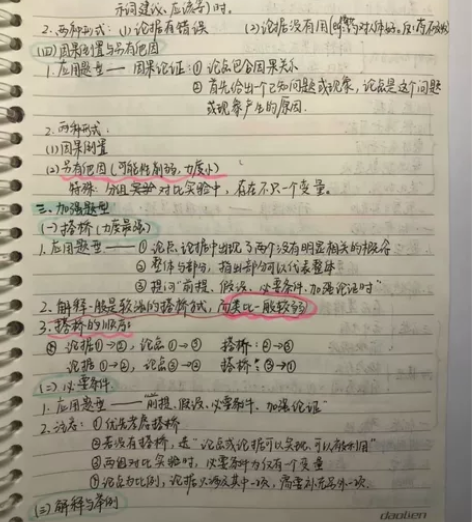 示词建议、应该等)时。
2.两种形式: (1)论据有错误 (2)论据没有用
(四)因果倒置与另有他因
1.应用题型——因果论证:①论点包含因果关系
②首先给出个已知问题或现象,论点是这个问题
或现象产生的原因.
2.两种形式.
(1)因果倒置
(2)另有他因(可能性削弱,力度小)
特殊:分组实验对比实验中,存在不只一个变量。
三、加强题型
(一)搭桥(力度最强)
1.应用题型——①论点、论据中出现了两个没有明显相关的概念
②整体与部分,指出部分可以代表整体
③提问"前提、假设、必要条件、加强论证时"
2.解释一般是较强的搭桥方式,而类比一般较弱
3.搭桥的顺序:
论据①→②,论点①→③ 搭桥:②→③
论据①→②,论点③→② 搭桥:③→①
(二)必要条件
1.应用题型——"前提、假设、必要条件、加强论证"
2.注意:①优先考虑搭桥
②若没有搭桥,选"论点或论据可以实现,可以有利用"
③两组对比实验时,必要条件为仅有一个变量
④论点为比例,论据只涉及其中一项,需要补充另外一项.
(三)解释与举例